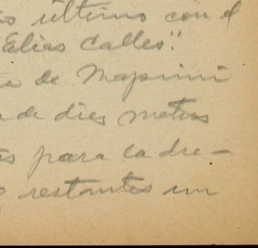 último con el
Elias Calles".
de Mapimi
de diez metros
para la dre-
restantes un